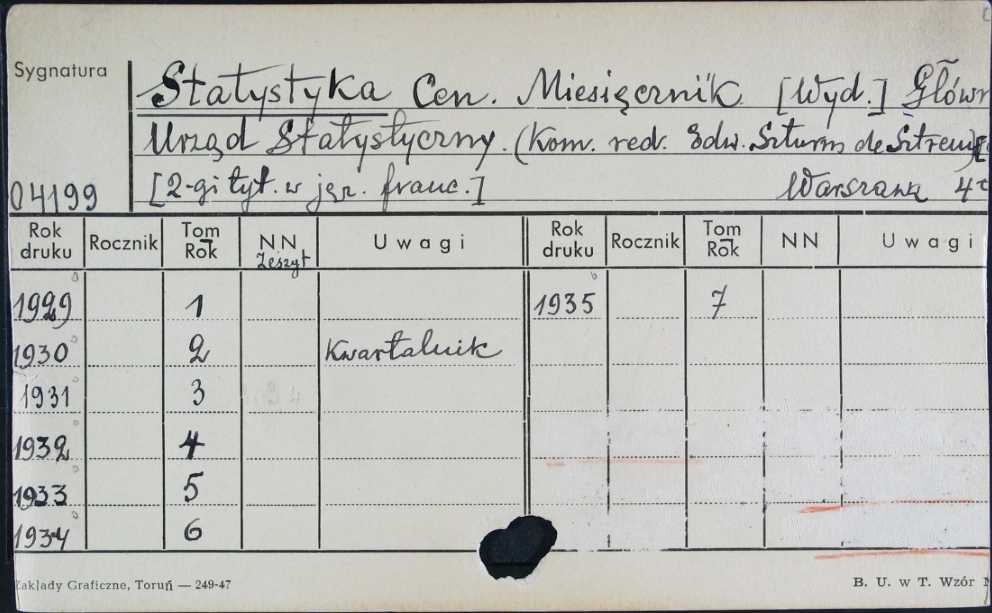 Sygnatura
Statystyka Cen. Miesięcznik. [Wyd.] Główn
Urząd Statystyczny. (Kom. red. Edw. Szturm de Sztrem)
04199 [2-gi tyt. w jęz. franc.] Warszawa 4°
Rok druku Rocznik Tom Rok NN Zeszyt Uwagi Rok druku Rocznik Tom Rok NN Uwagi
1929 1 1935 7
1930 2 Kwartalnik
1931 3
1932 4
1933 5
1934 6
Zakłady Graficzne, Toruń — 249-47 B. U. w T. Wzór